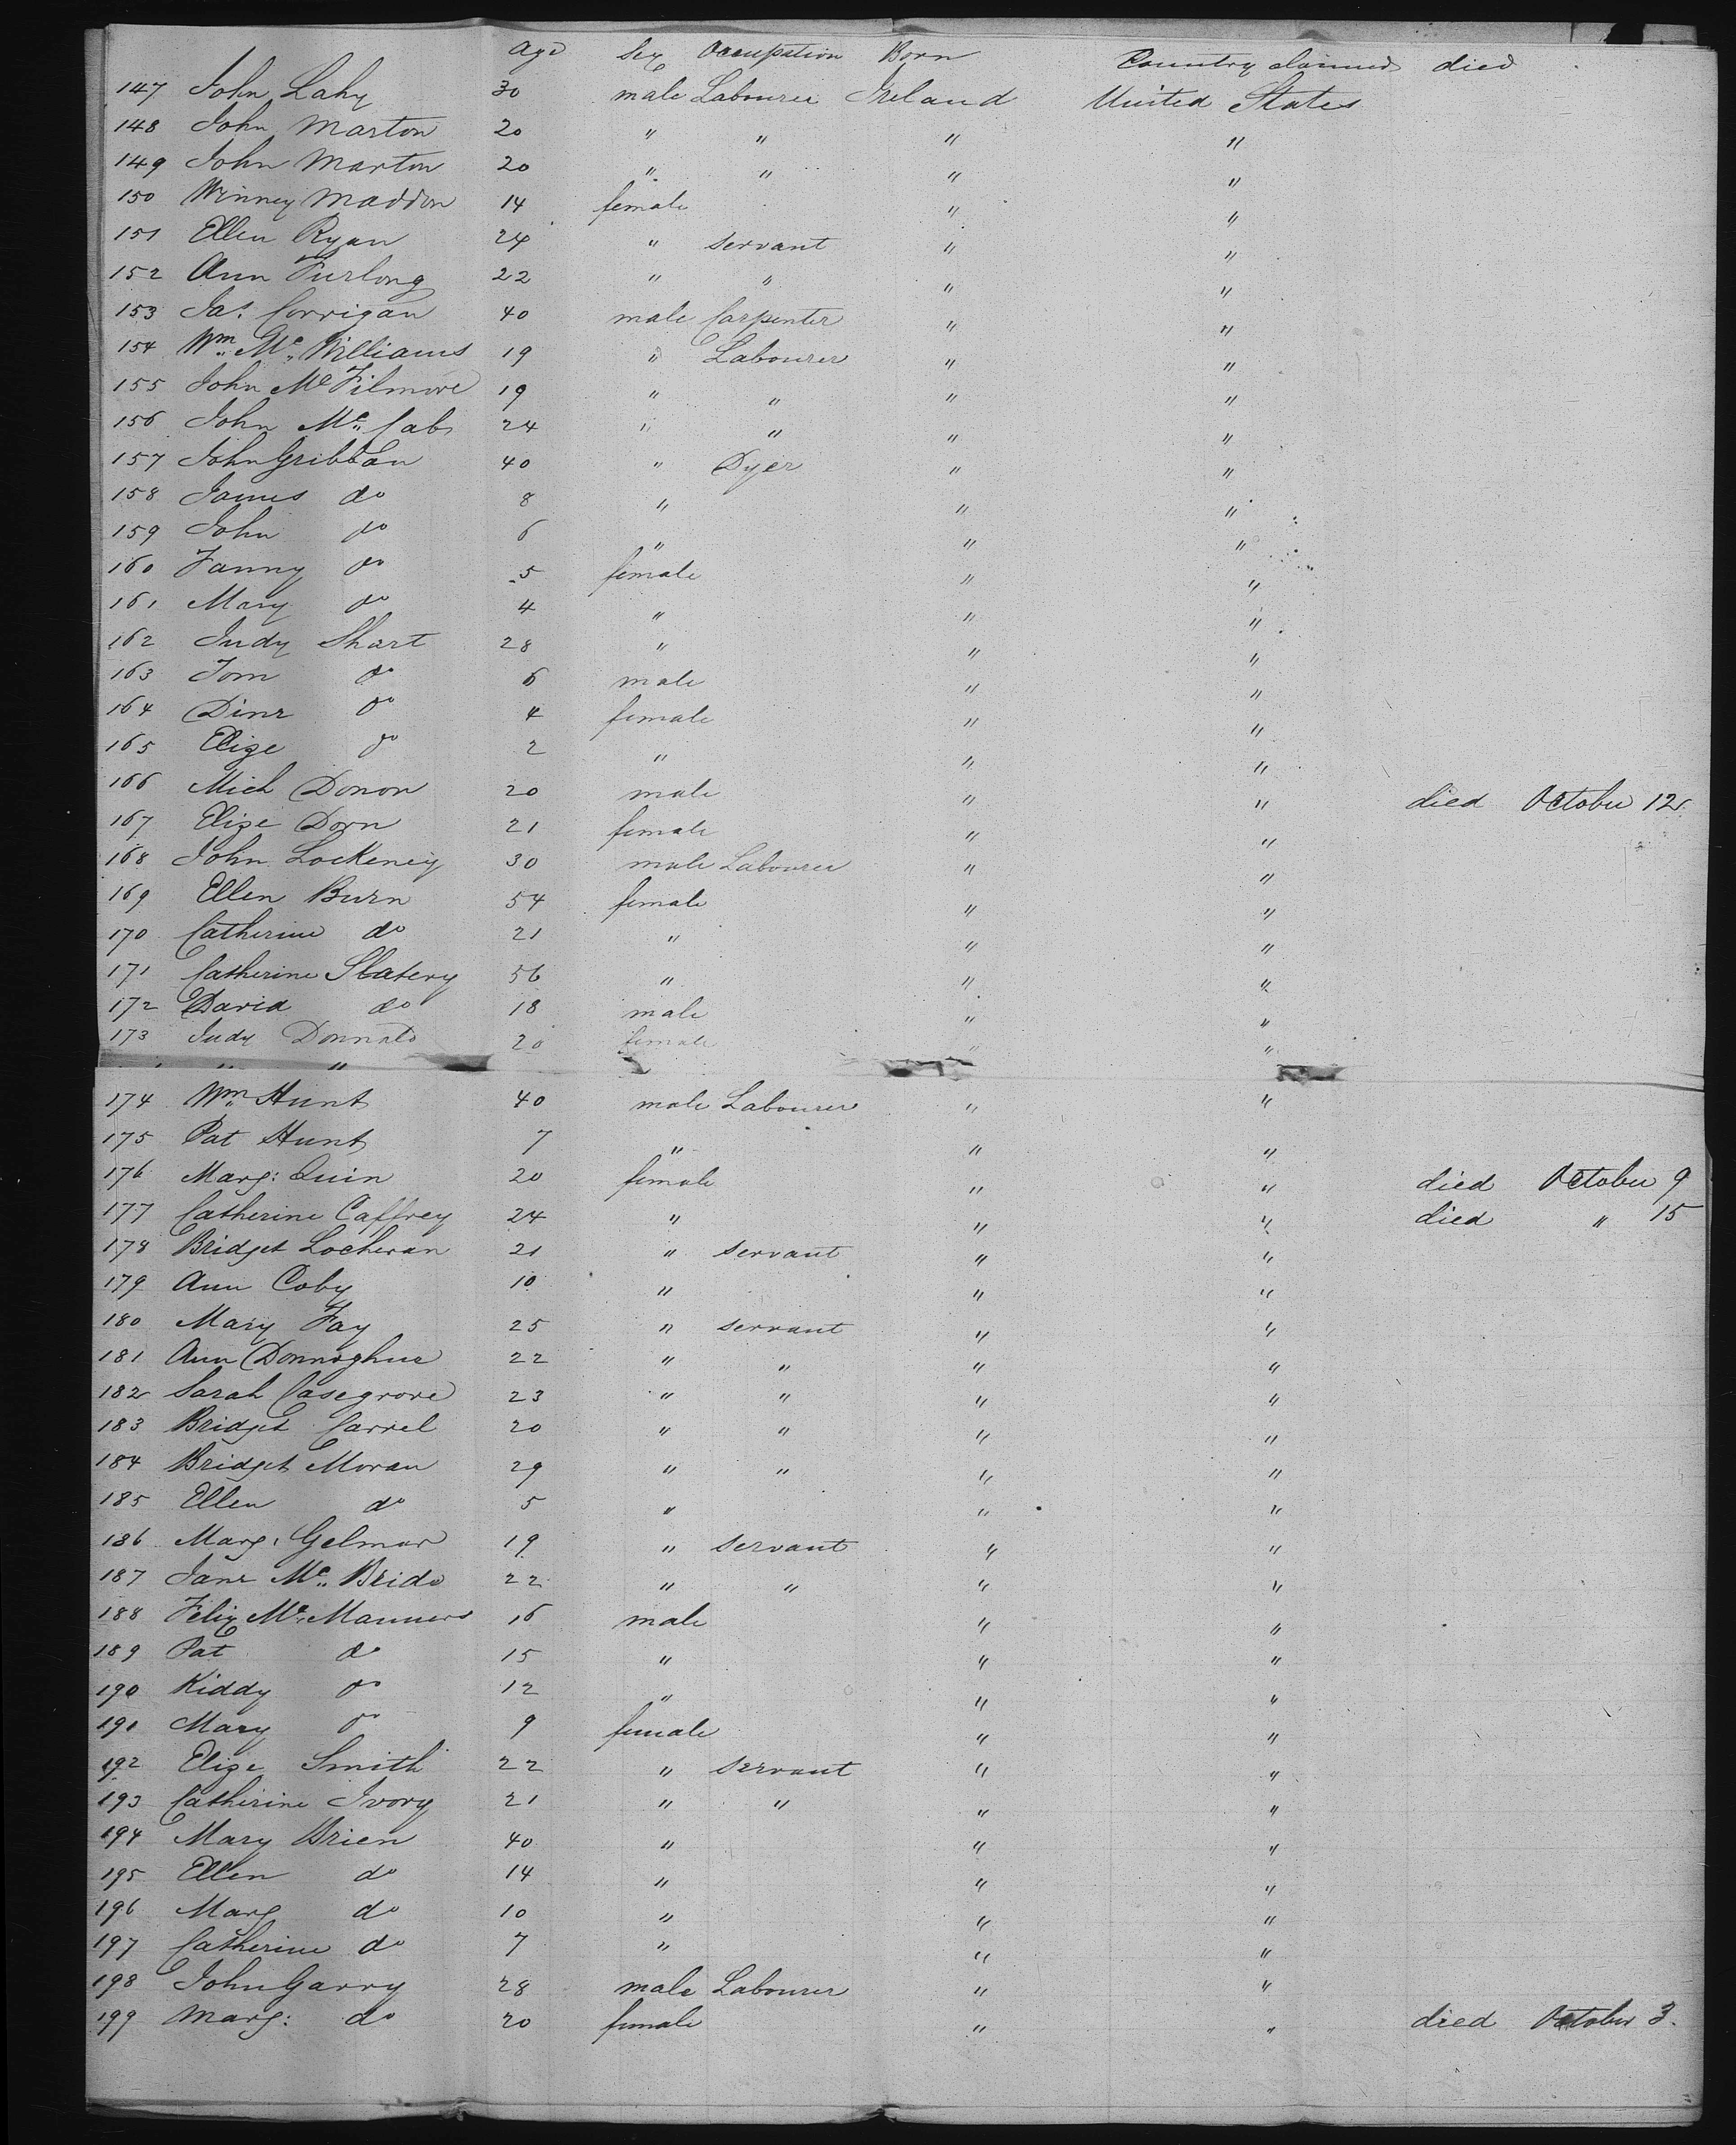 age Sex Occupation Born Country claimed died
147 John Lahy 30 male Labourer Ireland United States
148 John Marton 20 " " " "
149 John Marton 20 " " " "
150 Winney Maddon 14 female " "
151 Ellen Ryan 24 " servant " "
152 Ann Furlong 22 " " " "
153 Jas. Corrigan 40 male Carpenter " "
154 Wm. Mc. Williams 19 " Labourer " "
155 John Mc Filmore 19 " " " "
156 John Mc. Cabe 24 " " " "
157 John Gribban 40 " Dyer " "
158 James do 8 " " "
159 John do 6 " " "
160 Fanny do 5 female " "
161 Mary do 4 " " "
162 Judy Shart 28 " " "
163 Tom do 6 male " "
164 Dinr do 4 female " "
165 Elize do 2 " " "
166 Mich Donon 20 male " " died October 12.
167 Elize Dorn 21 female " "
168 John Lockeney 30 male Labourer " "
169 Ellen Burn 54 female " "
170 Catherine do 21 " " "
171 Catherine Slatery 56 " " "
172 David do 18 male " "
173 Judy Donnald 20 female " "
" "
174 Wm. Hunt 40 male Labourer " "
175 Pat Hunt 7 " " "
176 Marg: Quin 20 female " " died October 9
177 Catherine Caffrey 24 " " " died " 15
178 Bridget Locheran 21 " servant " "
179 Ann Coby 10 " " "
180 Mary Fay 25 " servant " "
181 Ann Donnoghue 22 " " " "
182 Sarah Casegrove 23 " " " "
183 Bridget Carrel 20 " " " "
184 Bridget Moran 29 " " " "
185 Ellen do 5 " " "
186 Marg: Gelmor 19 " servant " "
187 Jane Mc. Bride 22 " " " "
188 Felix Mc. Manners 16 male " "
189 Pat do 15 " " "
190 Kiddy do 12 " " "
191 Mary do 9 female " "
192 Elize Smith 22 " servant " "
193 Catherine Ivory 21 " " " "
194 Mary Brien 40 " " "
195 Ellen do 14 " " "
196 Marg do 10 " " "
197 Catherine do 7 " " "
198 John Garry 28 male Labourer " "
199 Marg: do 20 female " " died October 3.